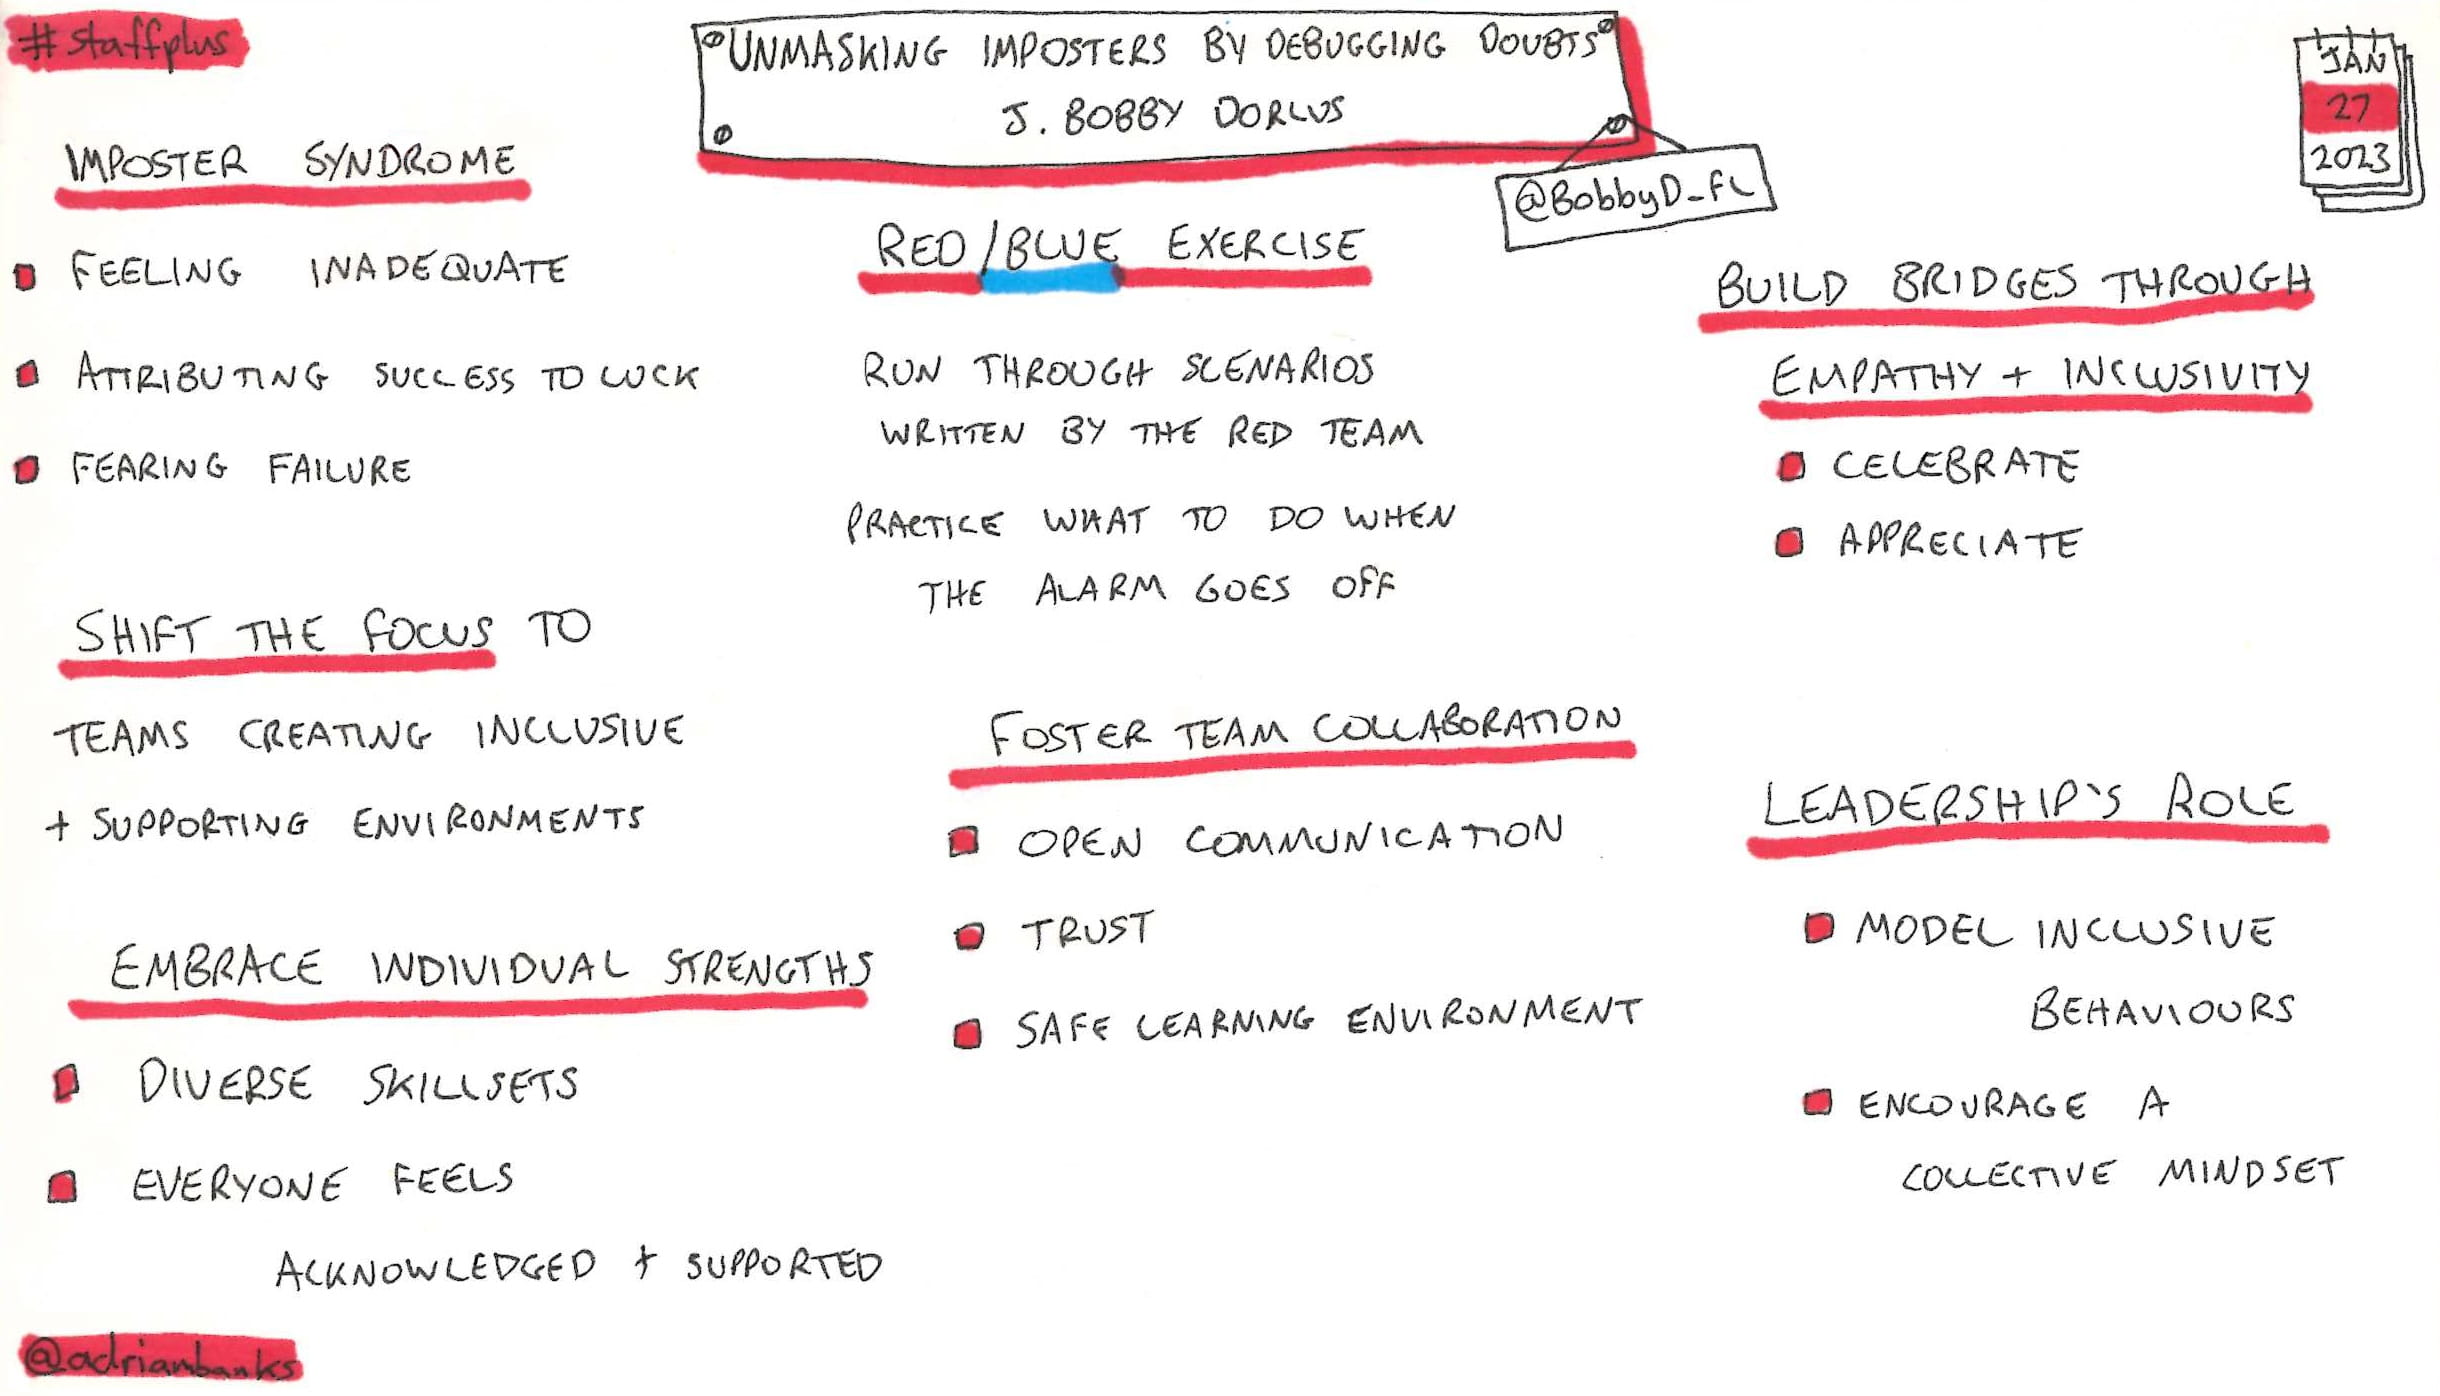 #staffplus
UNMASKING IMPOSTERS BY DEBUGGING DOUBTS
J. BOBBY DORLUS
@BobbyD_FL
JAN
27
2023
IMPOSTER SYNDROME
FEELING INADEQUATE
ATTRIBUTING SUCCESS TO LUCK
FEARING FAILURE
SHIFT THE FOCUS TO
TEAMS CREATING INCLUSIVE
+ SUPPORTING ENVIRONMENTS
EMBRACE INDIVIDUAL STRENGTHS
DIVERSE SKILLSETS
EVERYONE FEELS
ACKNOWLEDGED + SUPPORTED
RED/BLUE EXERCISE
RUN THROUGH SCENARIOS
WRITTEN BY THE RED TEAM
PRACTICE WHAT TO DO WHEN
THE ALARM GOES OFF
FOSTER TEAM COLLABORATION
OPEN COMMUNICATION
TRUST
SAFE LEARNING ENVIRONMENT
BUILD BRIDGES THROUGH
EMPATHY + INCLUSIVITY
CELEBRATE
APPRECIATE
LEADERSHIP'S ROLE
MODEL INCLUSIVE
BEHAVIOURS
ENCOURAGE A
COLLECTIVE MINDSET
@adrianbanks